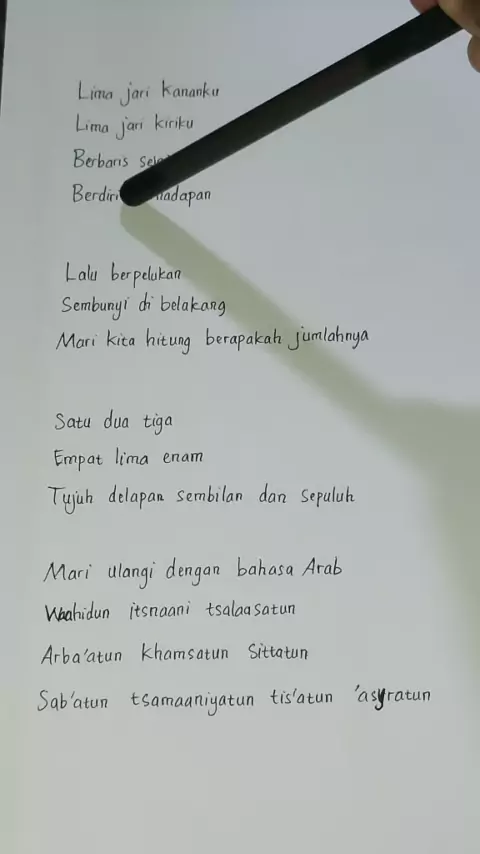 Lima jari kananku
Lima jari kiriku
Berbaris
Lalu berpelukan
Sembunyi di belakang
Mari kita hitung berapakah jumlahnya
Satu dua tiga
Empat lima enam
Tujuh delapan sembilan dan sepuluh
Mari ulangi dengan bahasa Arab
Waahidun itsnaani tsalaasatun
Arba'atun khamsatun sittatun
Sab'atun tsamaaniyatun tis'atun 'asyratun